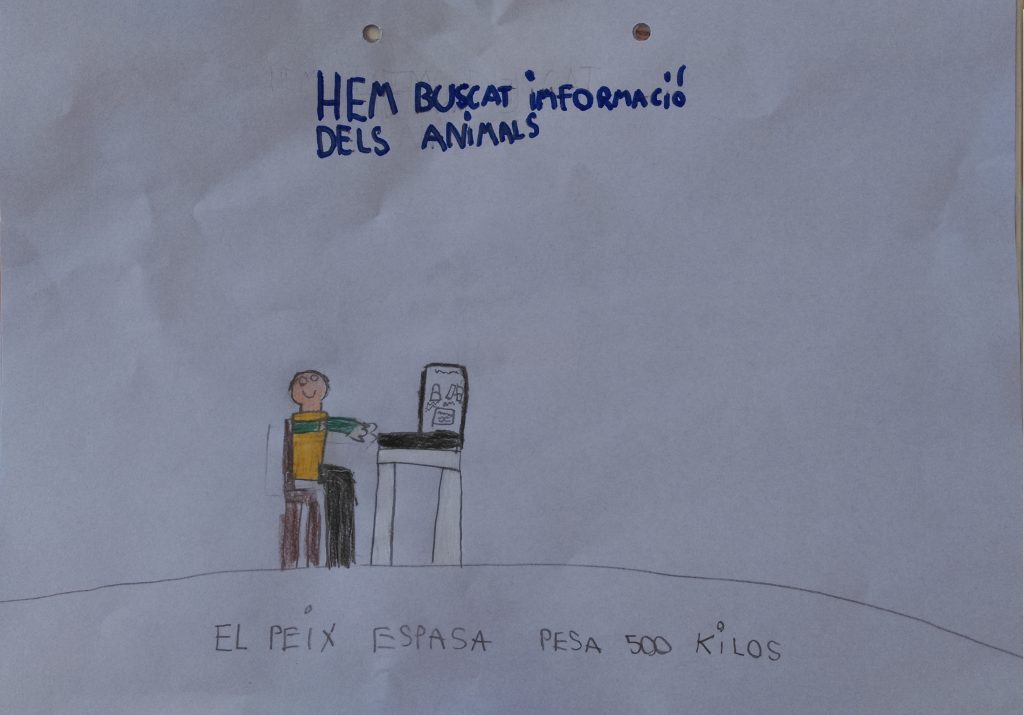 HEM BUSCAT iMFORMACIÓ
DELS ANiMALS
EL PEiX ESPASA PESA 500 KiLOS